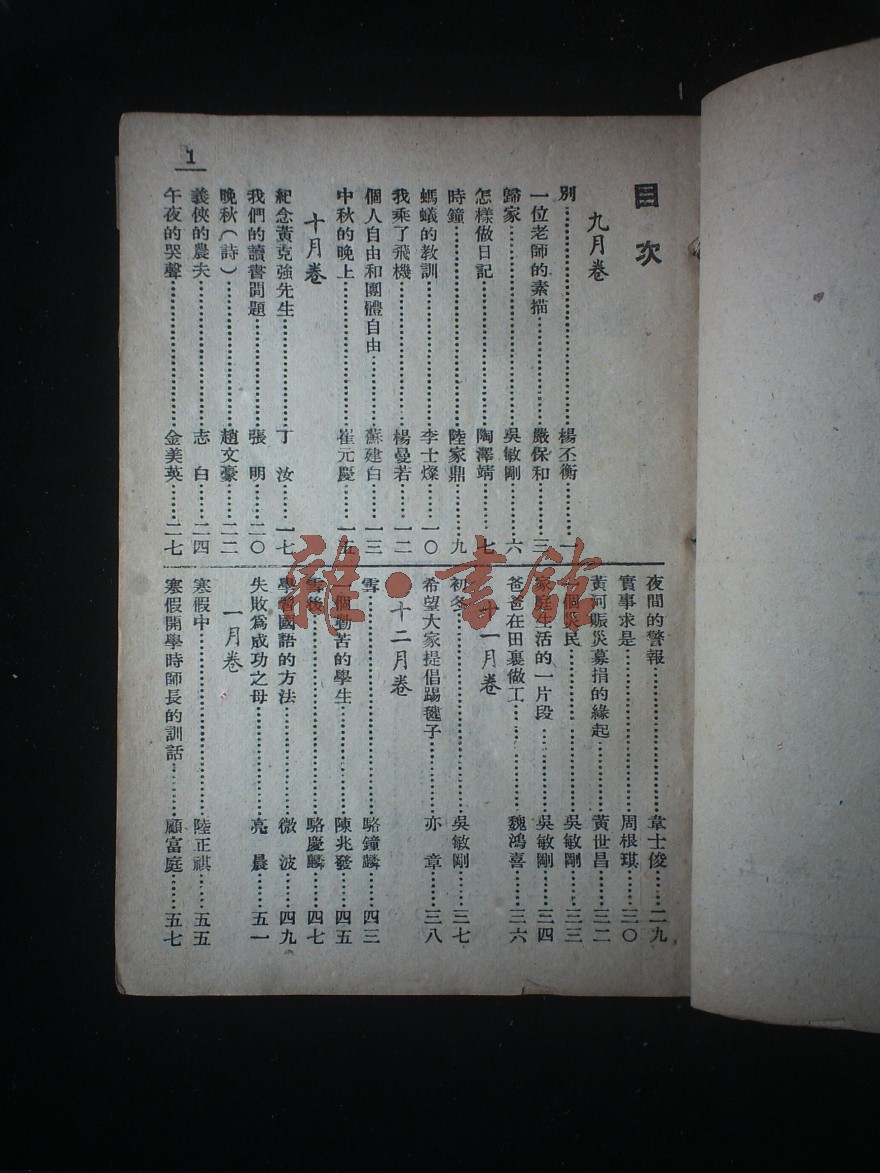 1
目次
九月卷
別……………楊丕衡……一
一位老師的素描……………嚴保和……三
歸家……………吳敏剛……六
怎樣做日記……………陶澤靖……七
時鐘……………陸家鼎……九
螞蟻的教訓……………李士燦……一〇
我乘了飛機……………楊曼若……一二
個人自由和團體自由……………蘇建白……一三
中秋的晚上……………崔元慶……一五
十月卷
紀念黃克強先生……………丁汝……一七
我們的讀書問題……………張明……二〇
晚秋(詩)……………趙文豪……二二
義俠的農夫……………志白……二四
午夜的哭聲……………金美英……二七
夜間的警報……………韋士俊……二九
實事求是……………周根琪……三〇
黃河賑災募捐的緣起……………黃世昌……三二
一個災民……………吳敏剛……三三
家庭生活的一片段……………吳敏剛……三四
爸爸在田裏做工……………魏鴻喜……三六
十一月卷
初冬……………吳敏剛……三七
希望大家提倡踢毽子……………亦章……三八
十二月卷
雪……………駱鐘麟……四三
一個勤苦的學生……………陳兆發……四五
雪後……………駱慶麟……四七
學習國語的方法……………微波……四九
失敗爲成功之母……………亮晨……五一
一月卷
寒假中……………陸正祺……五五
寒假開學時師長的訓話……………顧富庭……五七
雜·書館